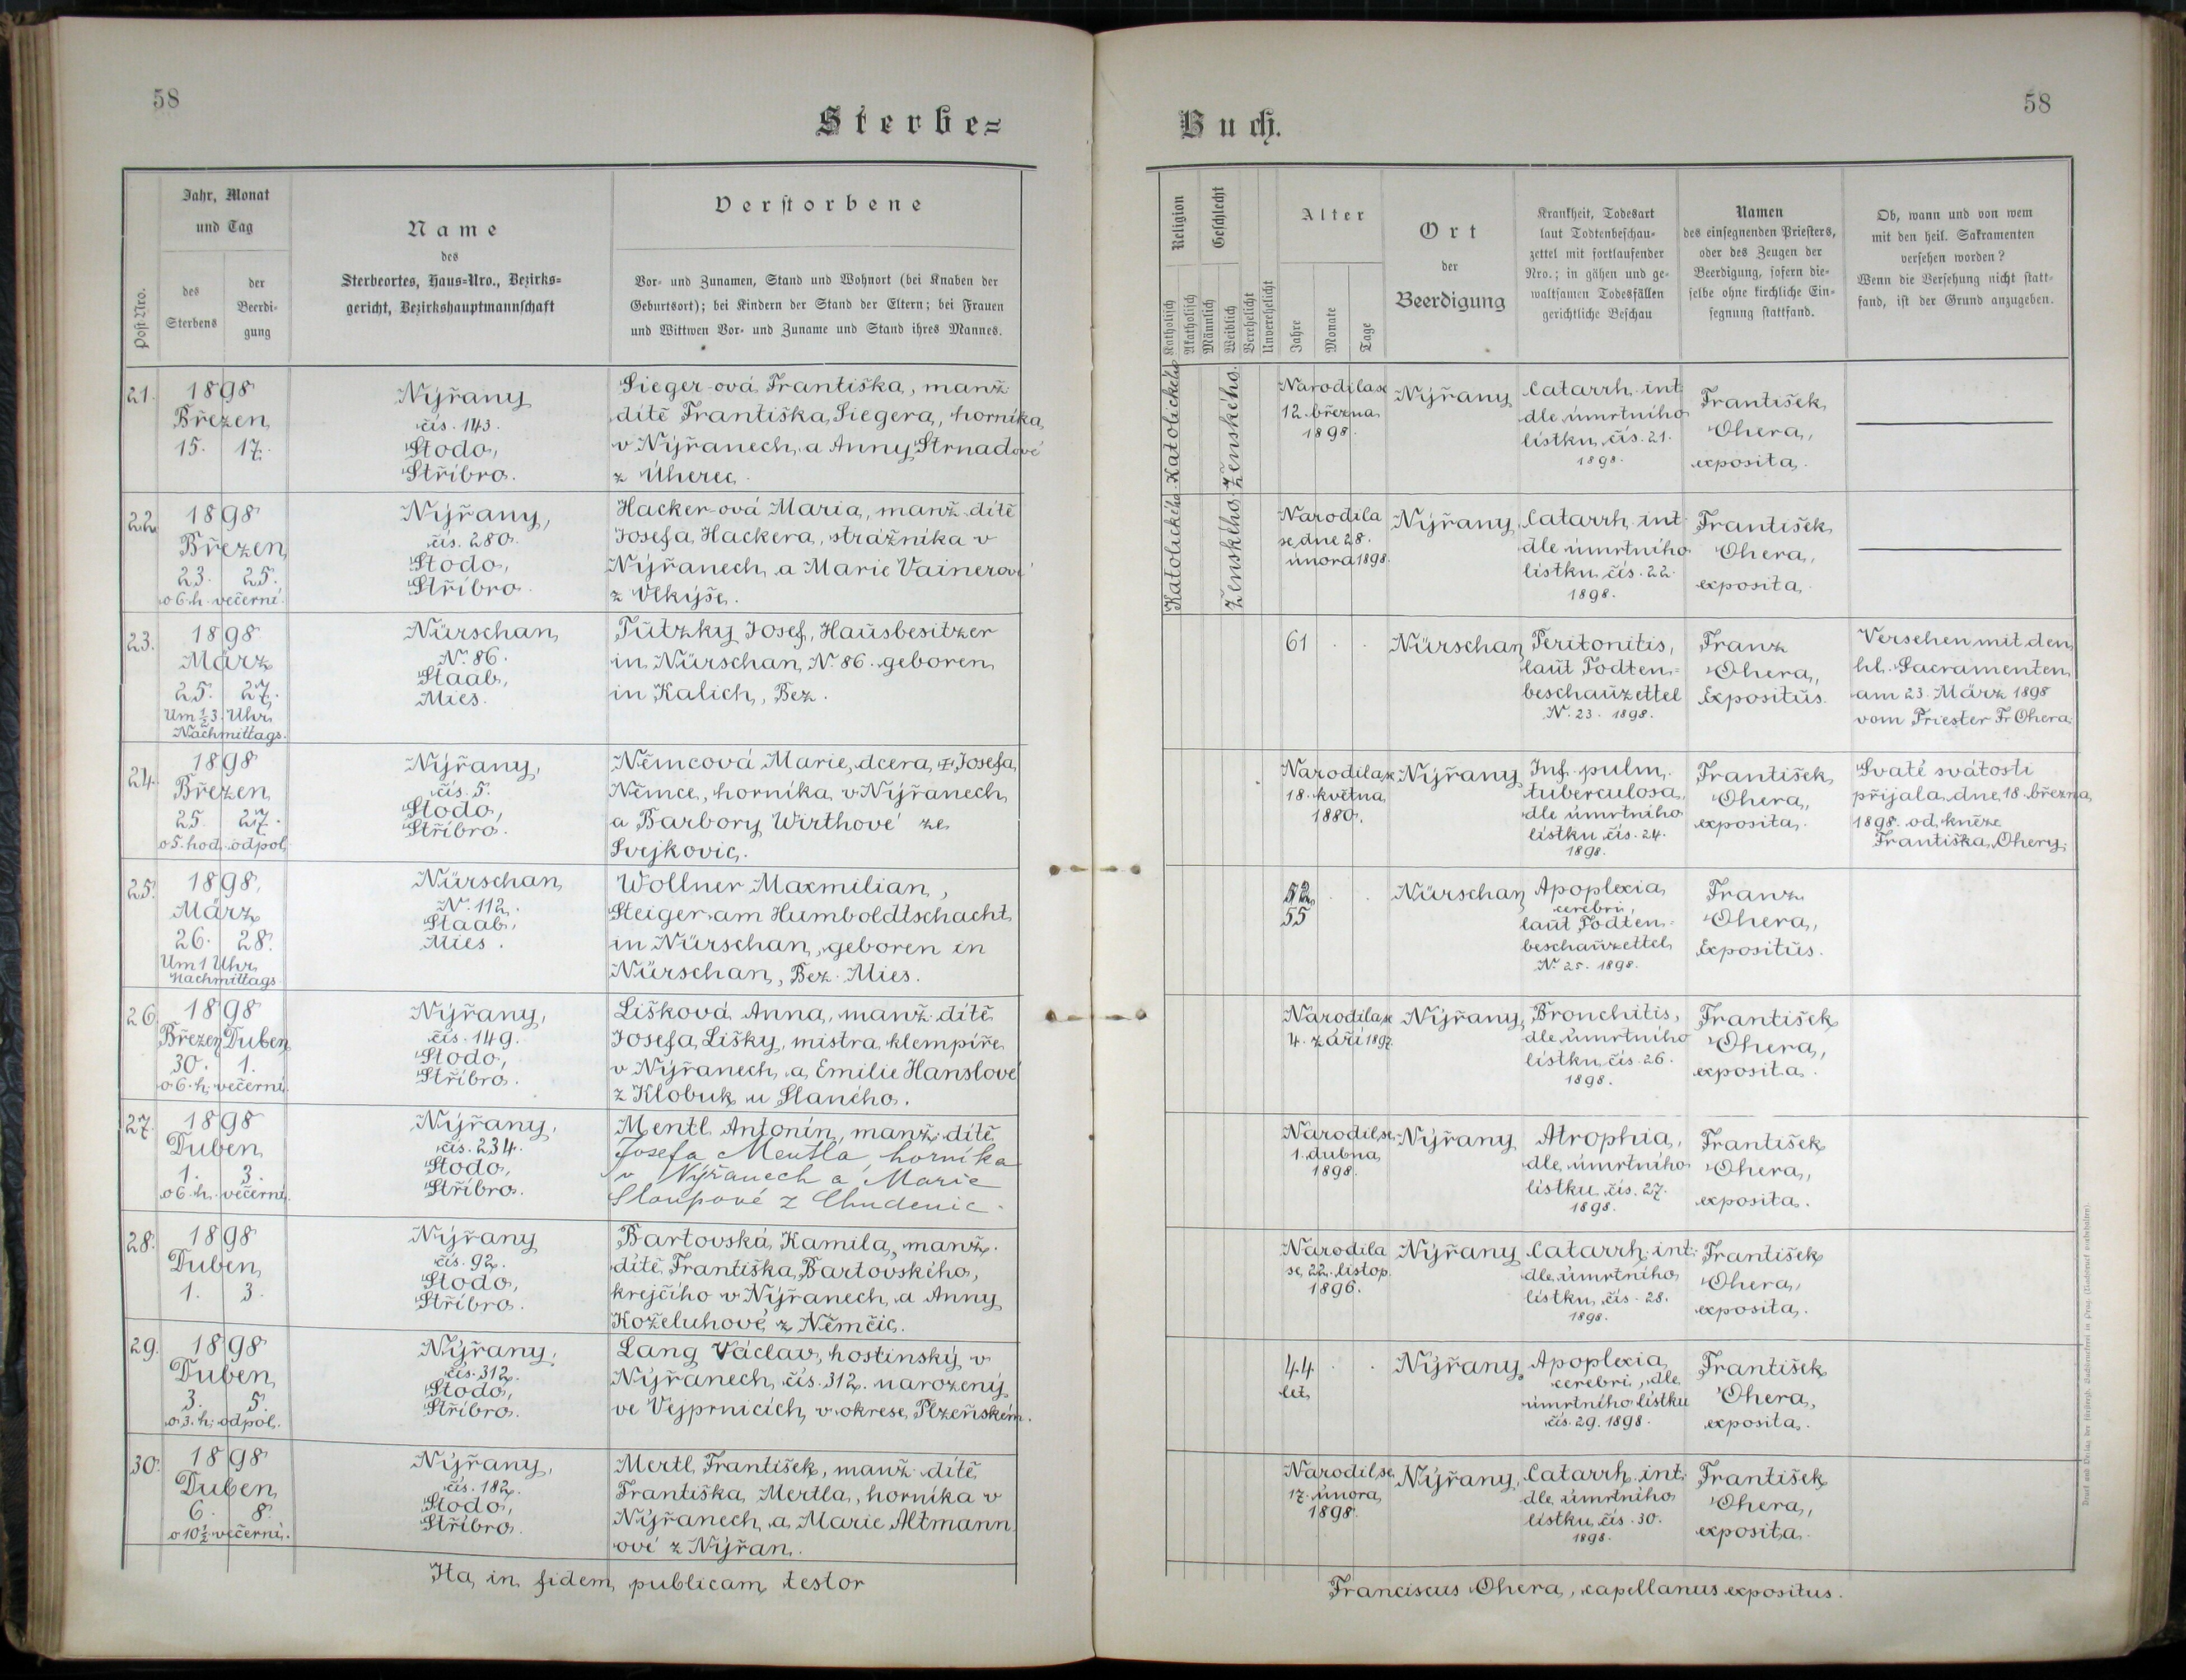 58
58
Sterbe=
Buch.
Post-Nro.
Jahr, Monat
und Tag
des
Sterbens
der
Beerdi-
gung
Name
des
Sterbeortes, Haus-Nro., Bezirks-
gericht, Bezirkshauptmannschaft
Verstorbene
Vor- und Zunamen, Stand und Wohnort (bei Knaben der
Geburtsort); bei Kindern der Stand der Eltern; bei Frauen
und Wittwen Vor- und Zuname und Stand ihres Mannes.
Religion
Katholisch
Akatholisch
Geschlecht
Männlich
Weiblich
Verehelicht
Unverehelicht
Alter
Jahre
Monate
Tage
Ort
der
Beerdigung
Krankheit, Todesart
laut Todtenbeschau-
zettel mit fortlaufender
Nro.; in gähen und ge-
waltsamen Todesfällen
gerichtliche Beschau
Namen
des einsegnenden Priesters,
oder des Zeugen der
Beerdigung, sofern die-
selbe ohne kirchliche Ein-
segnung stattfand.
Ob, wann und von wem
mit den heil. Sakramenten
versehen worden?
Wenn die Versehung nicht statt-
fand, ist der Grund anzugeben.
21.
1898
Březen
15. 17.
Nýřany
čís. 143.
Stodo,
Stříbro.
Sieger-ová Františka, manž.
dítě Františka Siegera, horníka
v Nýřanech, a Anny Strnadové
z Úherec.
Katolického
Ženského.
Narodila se
12. března
1898.
Nýřany
Catarrh. int.
dle úmrtního
lístku čís. 21.
1898.
František
Ohera,
exposita.
22.
1898
Březen
23. 25.
o 6. h. večerní.
Nýřany,
čís. 280.
Stodo,
Stříbro.
Hacker-ová Maria, manž. dítě
Josefa Hackera, strážníka v
Nýřanech, a Marie Vainerové
z Vlkýše.
Katolického
Ženského
Narodila
se dne 28.
února 1898.
Nýřany
Catarrh. int.
dle úmrtního
lístku čís. 22.
1898.
František
Ohera,
exposita.
23.
1898
März
25. 27.
Um ½3. Uhr
Nachmittags.
Nürschan,
N. 86.
Staab,
Mies.
Tutzky Josef, Hausbesitzer
in Nürschan, N. 86. geboren
in Kalich, Bez.
61 . .
Nürschan
Peritonitis,
laut Todten=
beschauzettel
N. 23. 1898.
Franz
Ohera,
Expositus.
Versehen mit den
hl. Sacramenten
am 23. März 1898
vom Priester Fr Ohera.
24.
1898
Březen
25. 27.
o 5. hod. odpol.
Nýřany,
čís. 5.
Stodo,
Stříbro.
Němcová Marie, dcera Josefa
Němce, horníka v Nýřanech
a Barbory Wirthové ze
Svejkovic.
Narodila se
18. května
1880.
Nýřany
Inf. pulm.
tuberculosa,
dle úmrtního
lístku čís. 24.
1898.
František
Ohera,
exposita.
Svaté svátosti
přijala dne 18. března
1898. od kněze
Františka Ohery.
25.
1898.
März
26. 28.
Um 1 Uhr
Nachmittags.
Nürschan
N. 112.
Staab,
Mies.
Wollner Maxmilian,
Steiger am Humboldtschacht
in Nürschan, geboren in
Nürschan, Bez. Mies.
55 . .
Nürschan
Apoplexia
cerebri,
laut Todten-
beschauzettel
N. 25. 1898.
Franz
Ohera,
Expositus.
26.
1898
Březen Duben
30. 1.
o 6. h. večerní.
Nýřany,
čís. 149.
Stodo,
Stříbro.
Lišková Anna, manž. dítě
Josefa Lišky, mistra klempíře
v Nýřanech, a Emilie Hanslové
z Klobuk u Slaného.
Narodila se
4. září 1897.
Nýřany,
Bronchitis,
dle úmrtního
lístku čís. 26.
1898.
František
Ohera,
exposita.
27.
1898
Duben
1. 3.
o 6. h. večerní.
Nýřany,
čís. 234.
Stodo,
Stříbro.
Mentl Antonín, manž. dítě
Josefa Mentla, horníka
v Nýřanech a Marie
Sloupové z Chudenic.
Narodil se
1. dubna
1898.
Nýřany
Atrophia,
dle úmrtního
lístku čís. 27.
1898.
František
Ohera,
exposita.
28.
1898
Duben
1. 3.
Nýřany
čís. 92.
Stodo,
Stříbro.
Bartovská Kamila, manž.
dítě Františka Bartovského,
krejčího v Nýřanech, a Anny
Koželuhové z Němčic.
Narodila
se 22. listop.
1896.
Nýřany
Catarrh. int.
dle úmrtního
lístku čís. 28.
1898.
František
Ohera,
exposita.
29.
1898
Duben
3. 5.
o 3. h. odpol.
Nýřany,
čís. 312.
Stodo,
Stříbro.
Lang Václav, hostinský v
Nýřanech čís. 312. narozený
ve Vejprnicích, v okrese Plzeňském.
44 . .
let
Nýřany
Apoplexia
cerebri, dle
úmrtního lístku
čís. 29. 1898.
František
Ohera,
exposita.
30.
1898
Duben
6. 8.
o 10½ večerní.
Nýřany,
čís. 182.
Stodo,
Stříbro.
Mertl František, manž. dítě
Františka Mertla, horníka v
Nýřanech, a Marie Altmann
ové z Nýřan.
Narodil se
17. února
1898.
Nýřany,
Catarrh. int.
dle úmrtního
lístku čís. 30.
1898.
František
Ohera,
exposita.
Ita in fidem publicam testor
Franciscus Ohera, capellanus expositus.